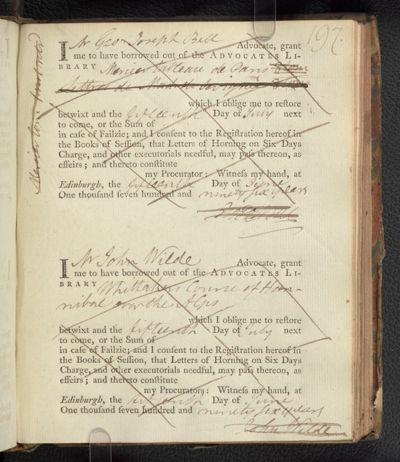 197.
I Mr Geo. Joseph Bell Advocate, grant
me to have borrowed out of the ADVOCATES LI-
BRARY Mercier Tableau de Paris
Lettres de
which I oblige me to restore
betwixt and the fifteenth Day of July next
to come, or the Sum of
in case of Failzie; and I consent to the Registration hereof in
the Books of Session, that Letters of Horning on Six Days
Charge, and other executorials needful, may pass thereon, as
effeirs; and thereto constitute
my Procurator: Witness my hand, at
Edinburgh, the Day of June
One thousand seven hundred and ninety six years
I Mr John Wilde Advocate, grant
me to have borrowed out of the ADVOCATES LI-
BRARY Whitaker's Course of Han-
nibal over the Alps
which I oblige me to restore
betwixt and the fifteenth Day of July next
to come, or the Sum of
in case of Failzie; and I consent to the Registration hereof in
the Books of Session, that Letters of Horning on Six Days
Charge, and other executorials needful, may pass thereon, as
effeirs; and thereto constitute
my Procurators: Witness my hand, at
Edinburgh, the Day of June
One thousand seven hundred and ninety six years
John Wilde